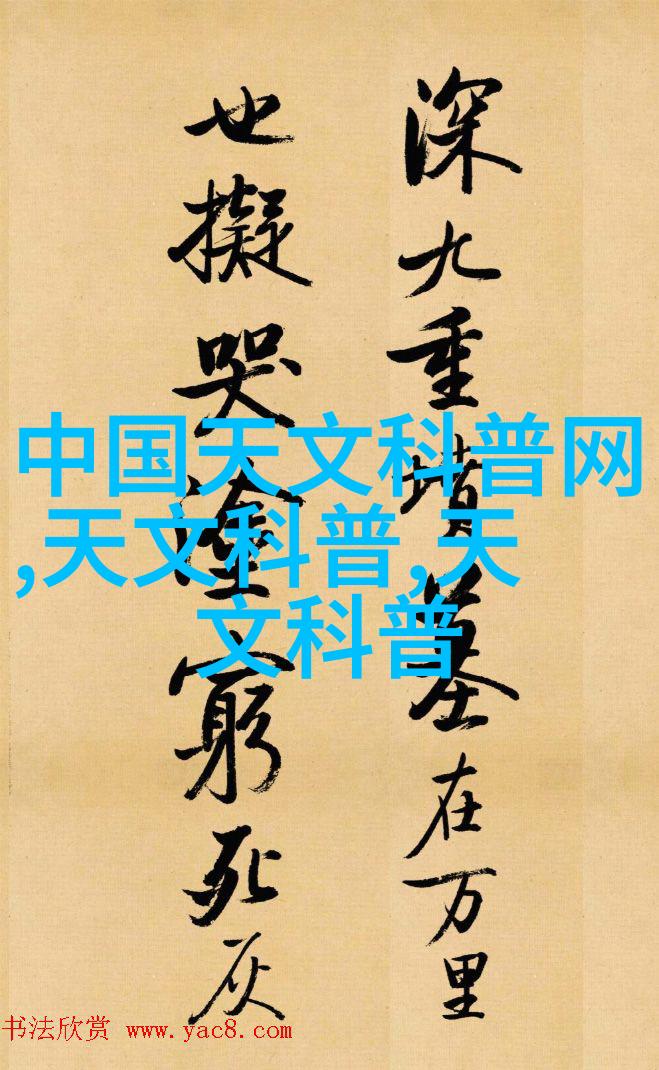 深九重墳墓在万里
也擬哭塗窮死灰
中国天文科普网
,天文科普,天
文科普
书法欣赏 www.yac8.com